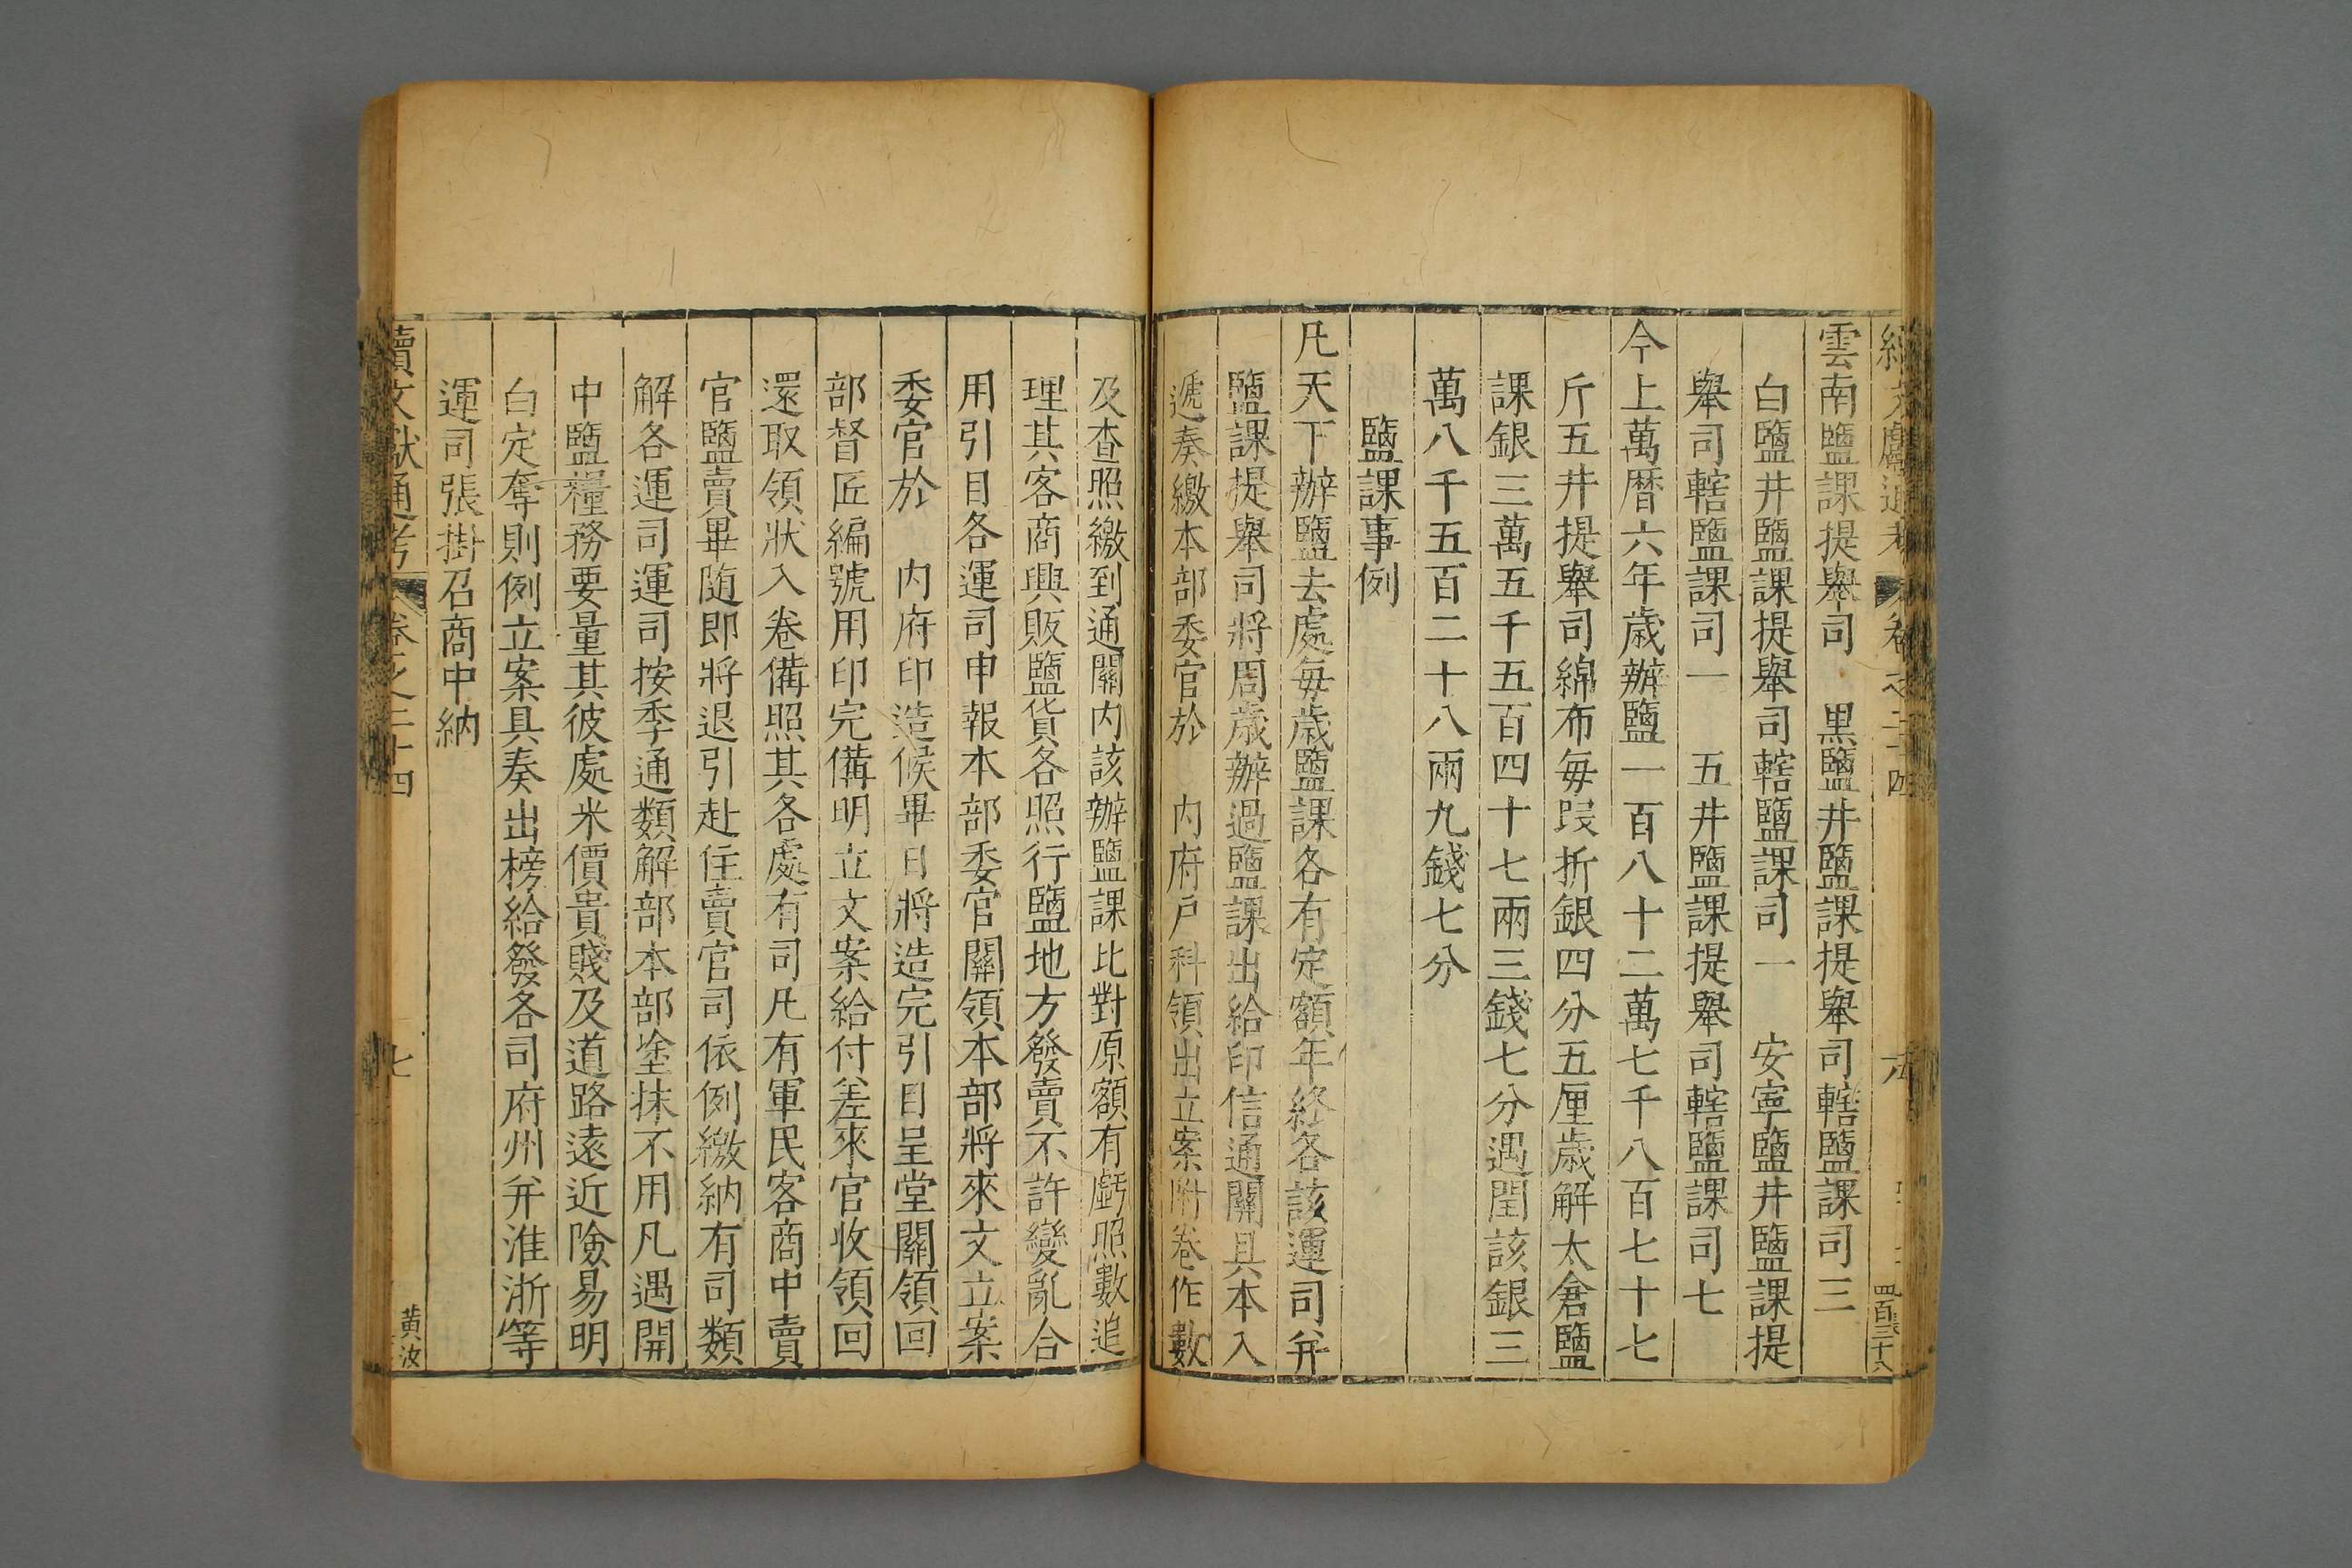 雲南鹽課提舉司　黑鹽井鹽課提舉司轄鹽課司三
白鹽井鹽課提舉司轄鹽課司一　安寧鹽井鹽課提
舉司轄鹽課司一　五井鹽課提舉司轄鹽課司七
今上萬曆六年歲辦鹽一百八十二萬七千八百七十七
斤五井提舉司綿布每段折銀四分五厘歲解太倉鹽
課銀三萬五千五百四十七兩三錢七分遇閏該銀三
萬八千五百二十八兩九錢七分
鹽課事例
凡天下辦鹽去處每歲鹽課各有定額年終各該運司并
鹽課提舉司將周歲辦過鹽課出給印信通關具本入
遞奏繳本部委官於　內府戶科領出立案附卷作數
及查照繳到通關內該辦鹽課比對原額有虧照數追
理其客商興販鹽貨各照行鹽地方發賣不許變亂合
用引目各運司申報本部委官關領本部將來文立案
委官於　內府印造候畢日將造完引目呈堂關領回
部督匠編號用印完備明立文案給付差來官收領回
還取領狀入卷備照其各處有司凡有軍民客商中賣
官鹽賣畢隨即將退引赴住賣官司依例繳納有司類
解各運司運司按季通類解部本部塗抹不用凡遇開
中鹽糧務要量其彼處米價貴賤及道路遠近險易明
白定奪則例立案具奏出榜給發各司府州并淮浙等
運司張掛召商中納
續文獻通考　卷之二十四　七　黃汝